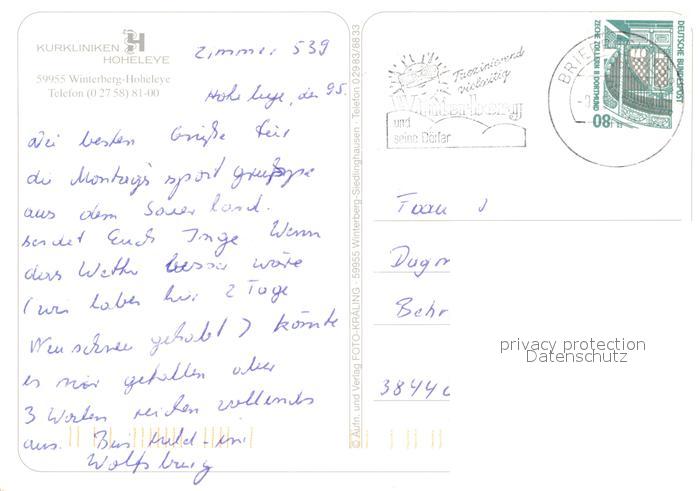 KURKLINIKEN
HOHELEYE
59955 Winterberg-Hoheleye
Telefon (0 27 58) 81-00
Zimmer 539
Hoheleye, den 9.5.
Die besten Grüße für
die Montagssport gruppe
aus dem Sauerland.
sendet Euch Inge Wenn
das Wetter besser wäre
(wir haben hier 2 Tage
Neuschnee gehabt) könnte
es mir gefallen aber
3 Wochen reichen vollends
aus. Bis bald in
Wolfsburg
© Aufn. und Verlag FOTO-KRÄLING · 59955 Winterberg-Siedlinghausen · Telefon 02983/8833
Faszinierend
vielseitig
Winterberg
und
seine Dörfer
BRIEF
DEUTSCHE BUNDESPOST
ZECHE ZOLLERN II DORTMUND
80
Frau
Dagm
Behr
38440
privacy protection
Datenschutz